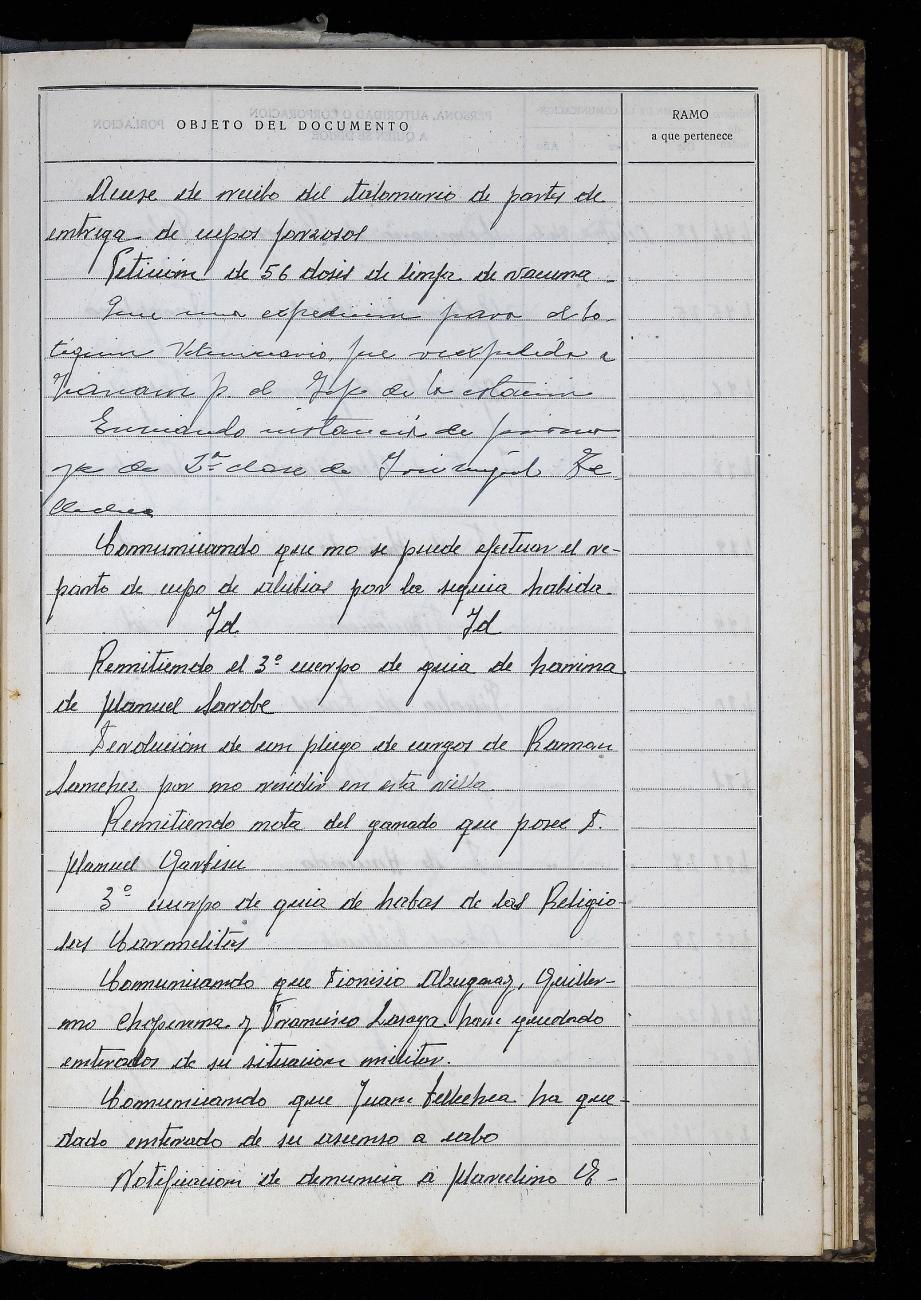 OBJETO DEL DOCUMENTO
RAMO
a que pertenece
Acuse de recibo del talonario de partes de
entrega de cupos forzosos
Petición de 56 dosis de linfa de vacuna
Que una expedicion para el bo-
tiquin Veterinario fue reexpedida a
p. el Jefe de la estacion
Enviando instancia de
de 2ª clase de José Miguel Te-
llechea
Comunicando que no se puede efectuar el re-
parto de cupo de alubias por la sequia habida.
Id Id
Remitiendo el 3º cuerpo de guia de harina
de Manuel Sarobe
Devolucion de un pliego de cargos de Ramon
Sanchez por no residir en esta villa.
Remitiendo nota del ganado que posee D.
Manuel Garbisu
3º cuerpo de guia de habas de las Religio-
sas Carmelitas
Comunicando que Dionisio Alzugaray, Guiller-
mo Choperena y Francisco Lasaga han quedado
enterados de su situacion militar.
Comunicando que Juan Tellechea ha que-
dado enterado de su ascenso a cabo
Notificacion de denuncia a Marcelino E-